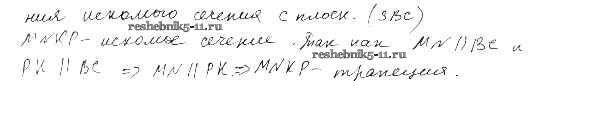 ния искомого сечения с плоск. (SBC)
reshebnik5-11.ru
MNKP - искомое сечение. Так как MN || BC и
reshebnik5-11.ru
PK || BC => MN || PK => MNKP - трапеция.